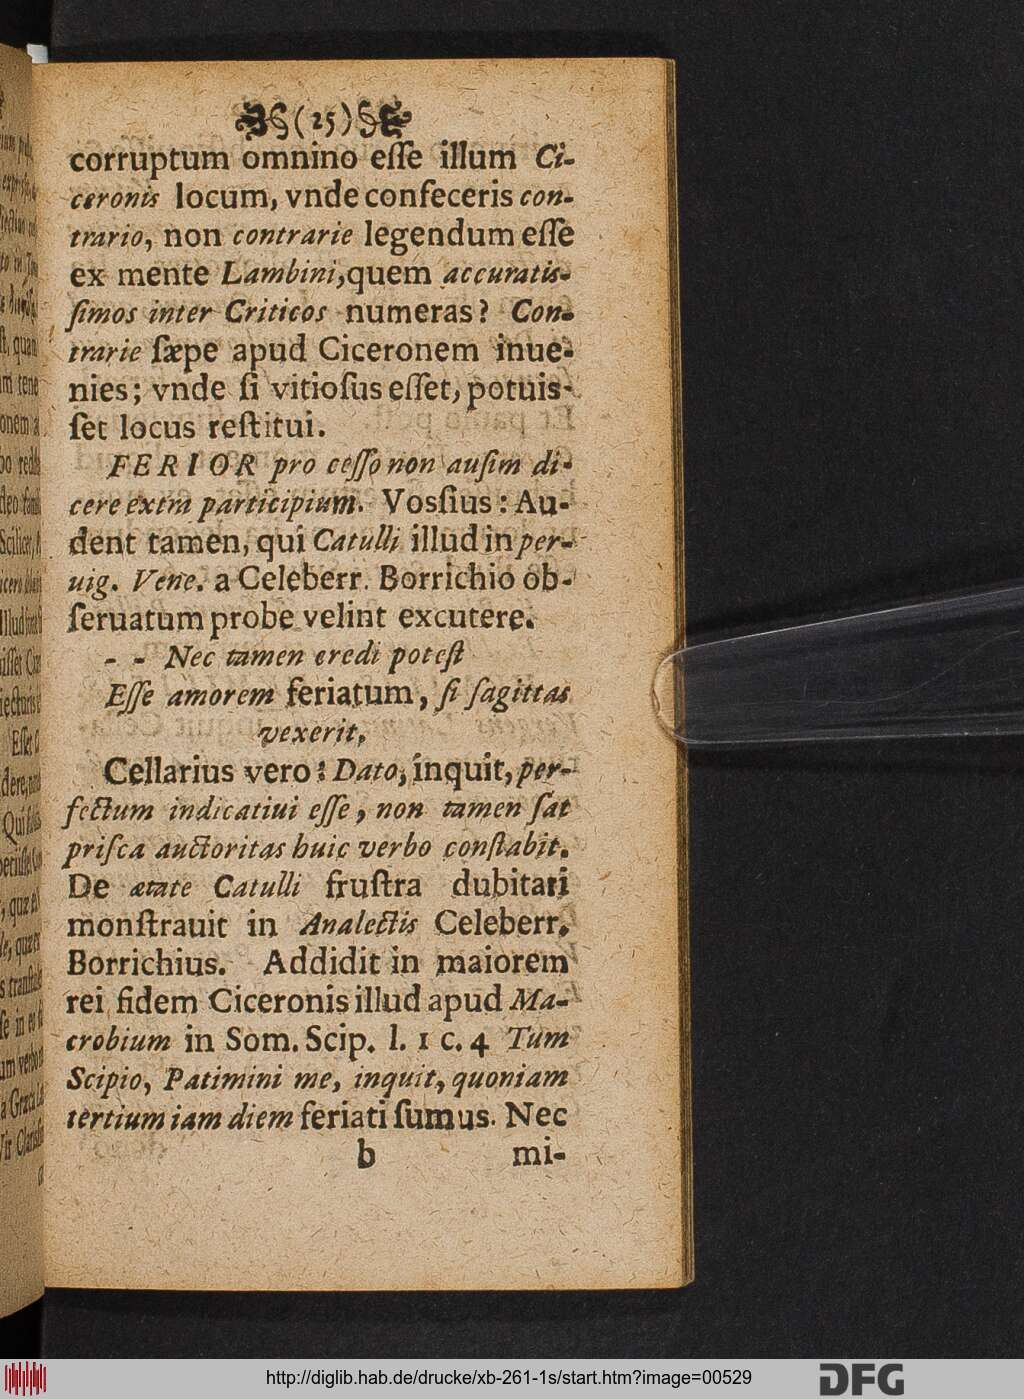 (25)
corruptum omnino eſſe illum Ci-
ceronis locum, vnde confeceris con-
trario, non contrarie legendum eſſe
ex mente Lambini, quem accuratis-
ſimos inter Criticos numeras? Con-
trarie ſæpe apud Ciceronem inue-
nies; vnde ſi vitioſus eſſet, potuis-
ſet locus reſtitui.
FERIOR pro ceſſo non auſim di-
cere extra participium. Vosſius: Au-
dent tamen, qui Catulli illud in per-
uig. Vene. a Celeberr. Borrichio ob-
ſeruatum probe velint excutere.
- - Nec tamen credi poteſt
Eſſe amorem feriatum, ſi ſagittas
vexerit.
Cellarius vero: Dato, inquit, per-
fectum indicatiui eſſe, non tamen ſat
priſca auctoritas huic verbo conſtabit.
De ætate Catulli fruſtra dubitari
monſtrauit in Analectis Celeberr.
Borrichius. Addidit in maiorem
rei fidem Ciceronis illud apud Ma-
crobium in Som. Scip. l. 1 c. 4 Tum
Scipio, Patimini me, inquit, quoniam
tertium iam diem feriati ſumus. Nec
b mi-
http://diglib.hab.de/drucke/xb-261-1s/start.htm?image=00529
DFG